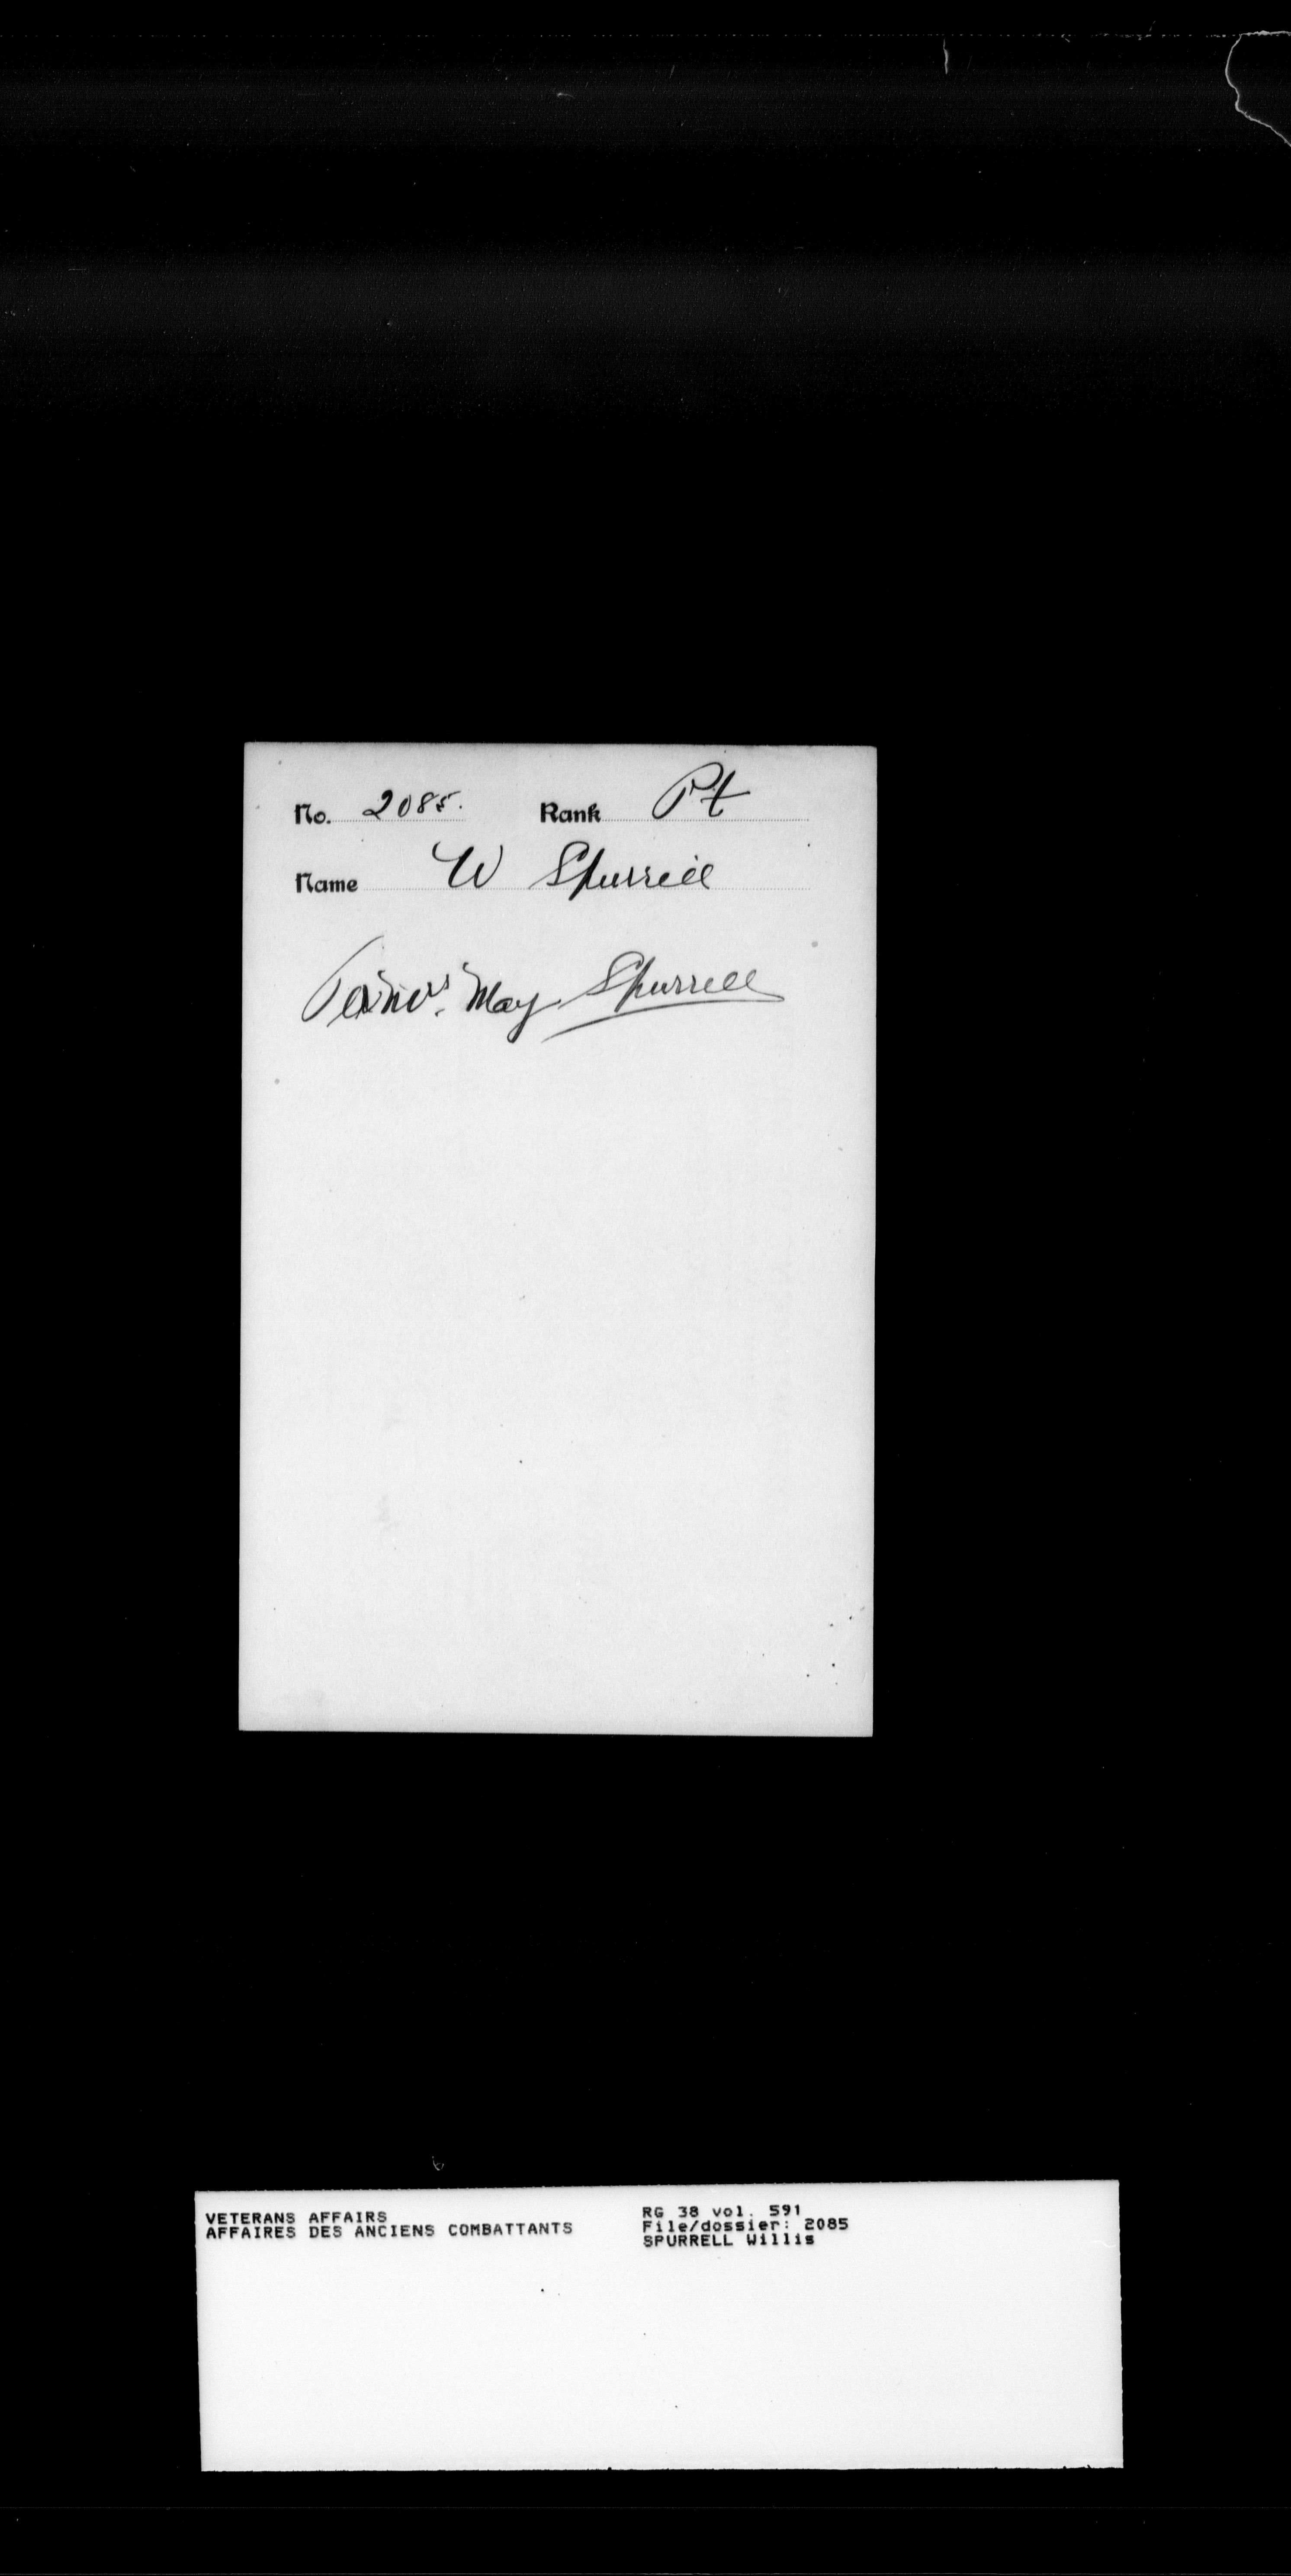 No. 2085. Rank Pt
Name W Spurrell
May Spurrell
VETERANS AFFAIRS
AFFAIRES DES ANCIENS COMBATTANTS
RG 38 vol. 591
File/dossier: 2085
SPURRELL Willis